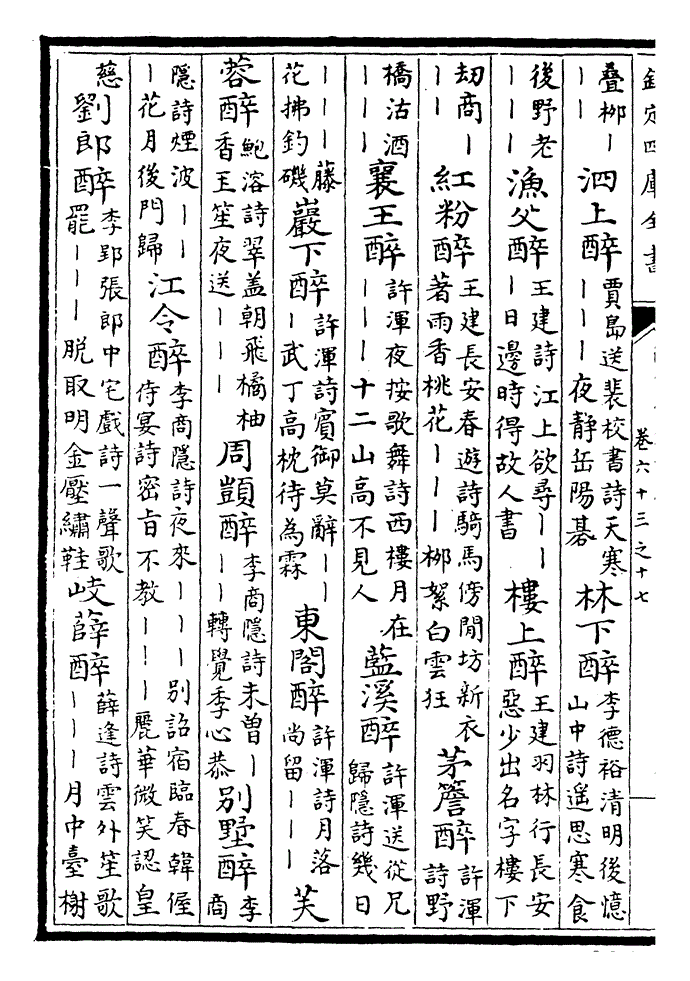 欽定四庫全書
卷六十三之十七
疊柳｜
｜｜
泗上醉
賈島送裴校書詩天寒
｜｜｜夜靜岳陽碁
林下醉
李德裕清明後憶
山中詩遙思寒食
後野老
｜｜｜
漁父醉
王建詩江上欲尋｜｜
｜日邊時得故人書
樓上醉
王建羽林行長安
惡少出名字樓下
劫商｜
｜｜
紅粉醉
王建長安春遊詩騎馬傍閒坊新衣
著雨香桃花｜｜｜栁絮白雲狂
茅簷醉
許渾
詩野
橋沽酒
｜｜｜
襄王醉
許渾夜按歌舞詩西樓月在
｜｜｜十二山高不見人
藍溪醉
許渾送從兄
歸隱詩幾日
｜｜｜藤
花拂釣磯
巖下醉
許渾詩賓御莫辭｜｜
｜武丁高枕待為霖
東閣醉
許渾詩月落
尚留｜｜｜
芙
蓉醉
鮑溶詩翠盖朝飛橘柚
香玉笙夜送｜｜｜
周顗醉
李商隱詩未曾｜
｜｜轉覺季心恭
別墅醉
李
商
隱詩煙波｜｜
｜花月後門歸
江令醉
李商隱詩夜來｜｜｜別詔宿臨春韓偓
侍宴詩密旨不教｜｜｜麗華微笑認皇
慈
劉郎醉
李郢張郎中宅戲詩一聲歌
罷｜｜｜脱取明金壓繡鞋
岐薛醉
薛逢詩雲外笙歌
｜｜｜月中臺榭